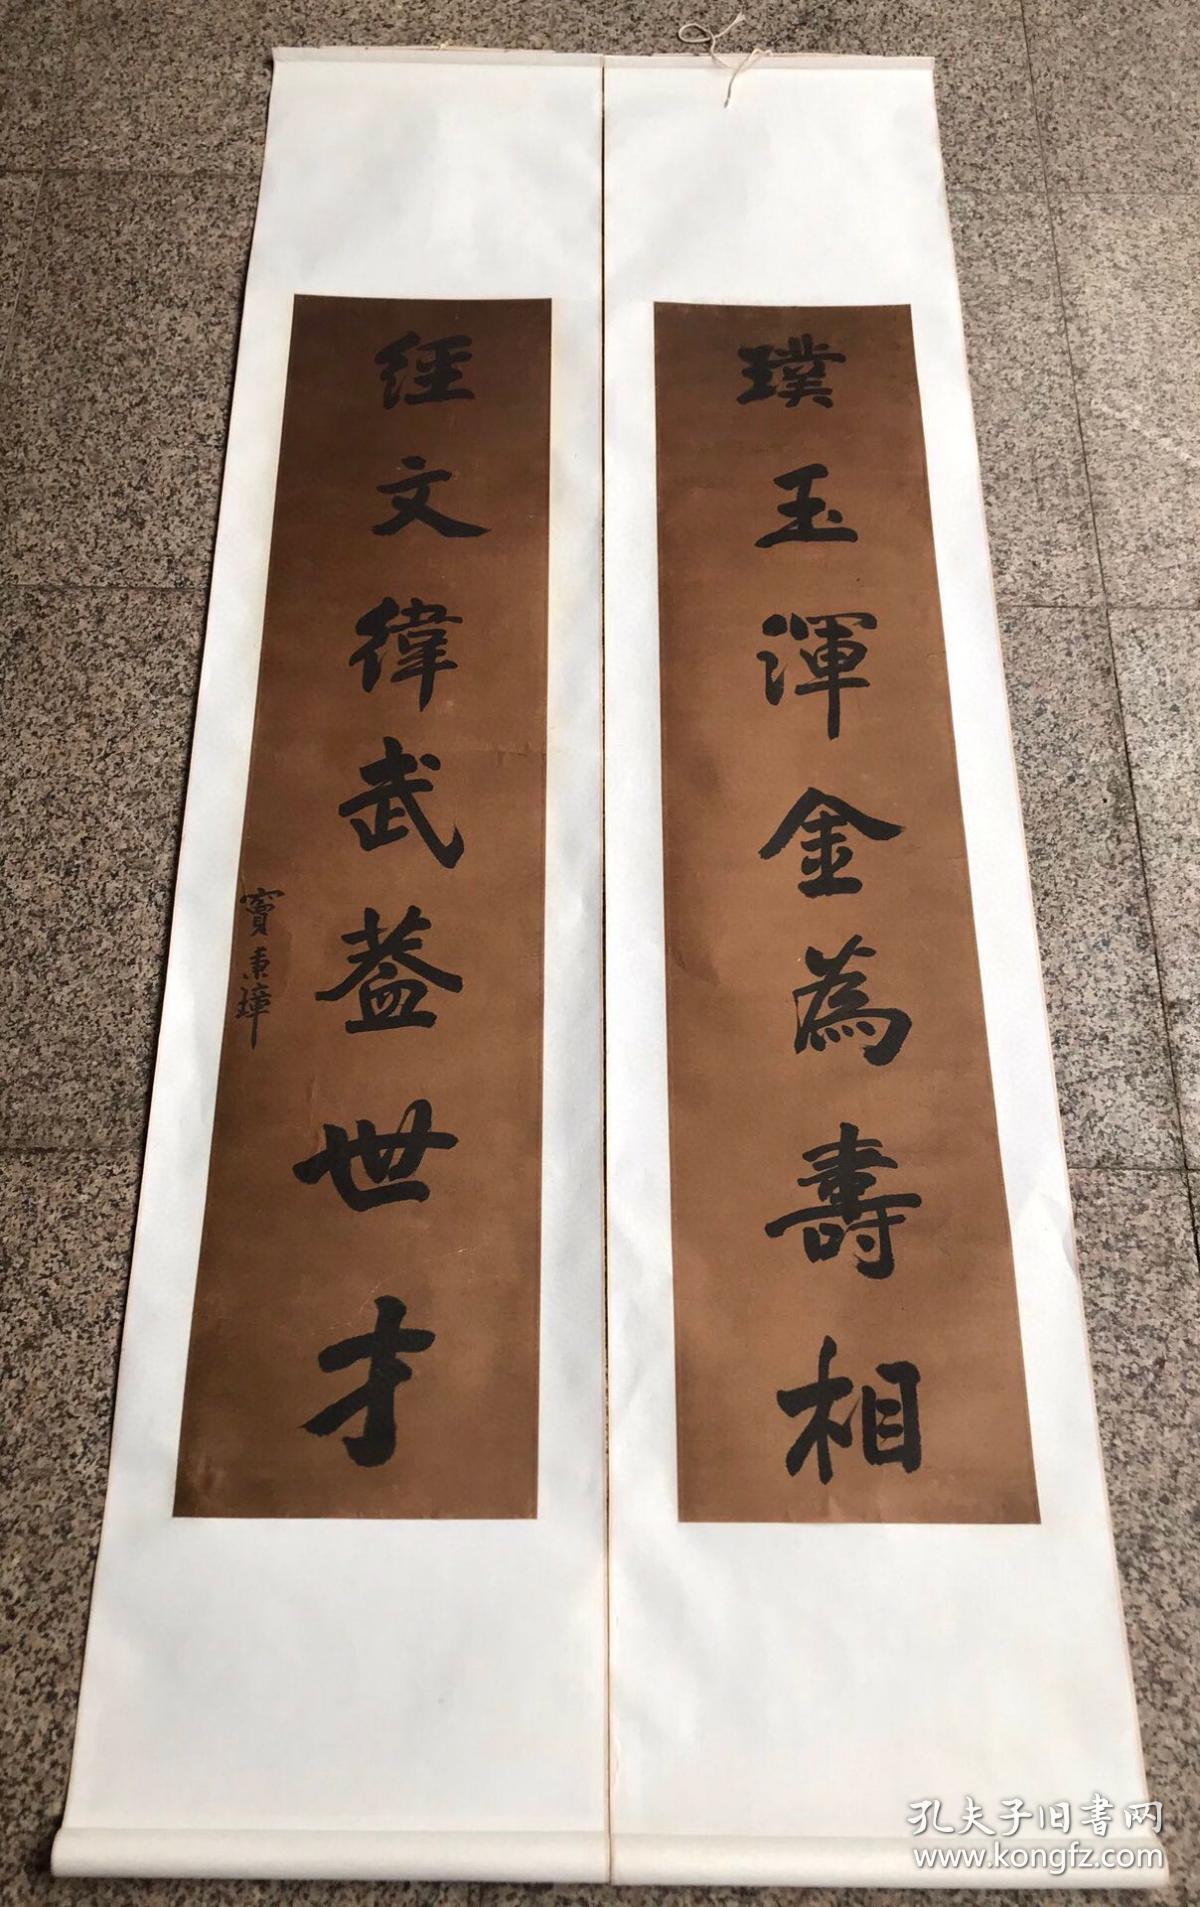 璞玉渾金為壽相
經文緯武蓋世才
竇秉璋
孔夫子旧書网
www.kongfz.com